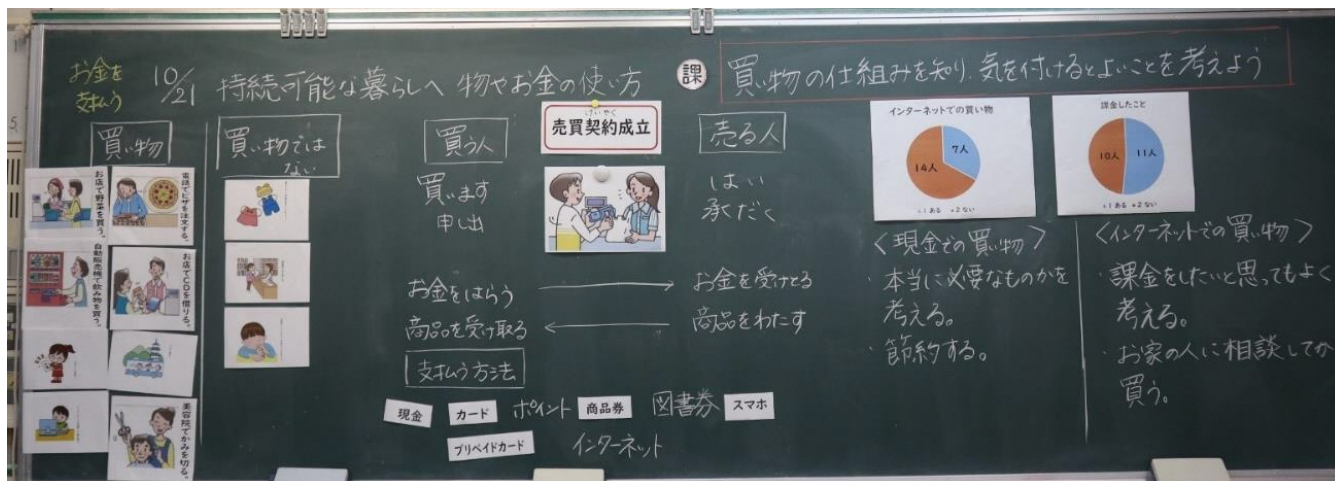 お金を
支払う
10/21 持続可能な暮らしへ 物やお金の使い方
課
買い物の仕組みを知り、気を付けるとよいことを考えよう
買い物
お店で野菜を買う。
電話でピザを注文する。
自動販売機で飲み物を買う。
お店でCDを借りる。
美容院でかみを切る。
買い物では
ない
買う人
買います
申し出
けいやく
売買契約成立
売る人
はい
承だく
お金をはらう
お金を受けとる
商品を受け取る
商品をわたす
支払う方法
現金
カード
ポイント
商品券
図書券
スマホ
プリペイドカード
インターネット
インターネットでの買い物
7人
14人
■1 ある ■2 ない
課金したこと
10人
11人
■1 ある ■2 ない
<現金での買い物>
・本当に必要なものかを
考える。
・節約する。
<インターネットでの買い物>
・課金をしたいと思ってもよく
考える。
・お家の人に相談してか
買う。